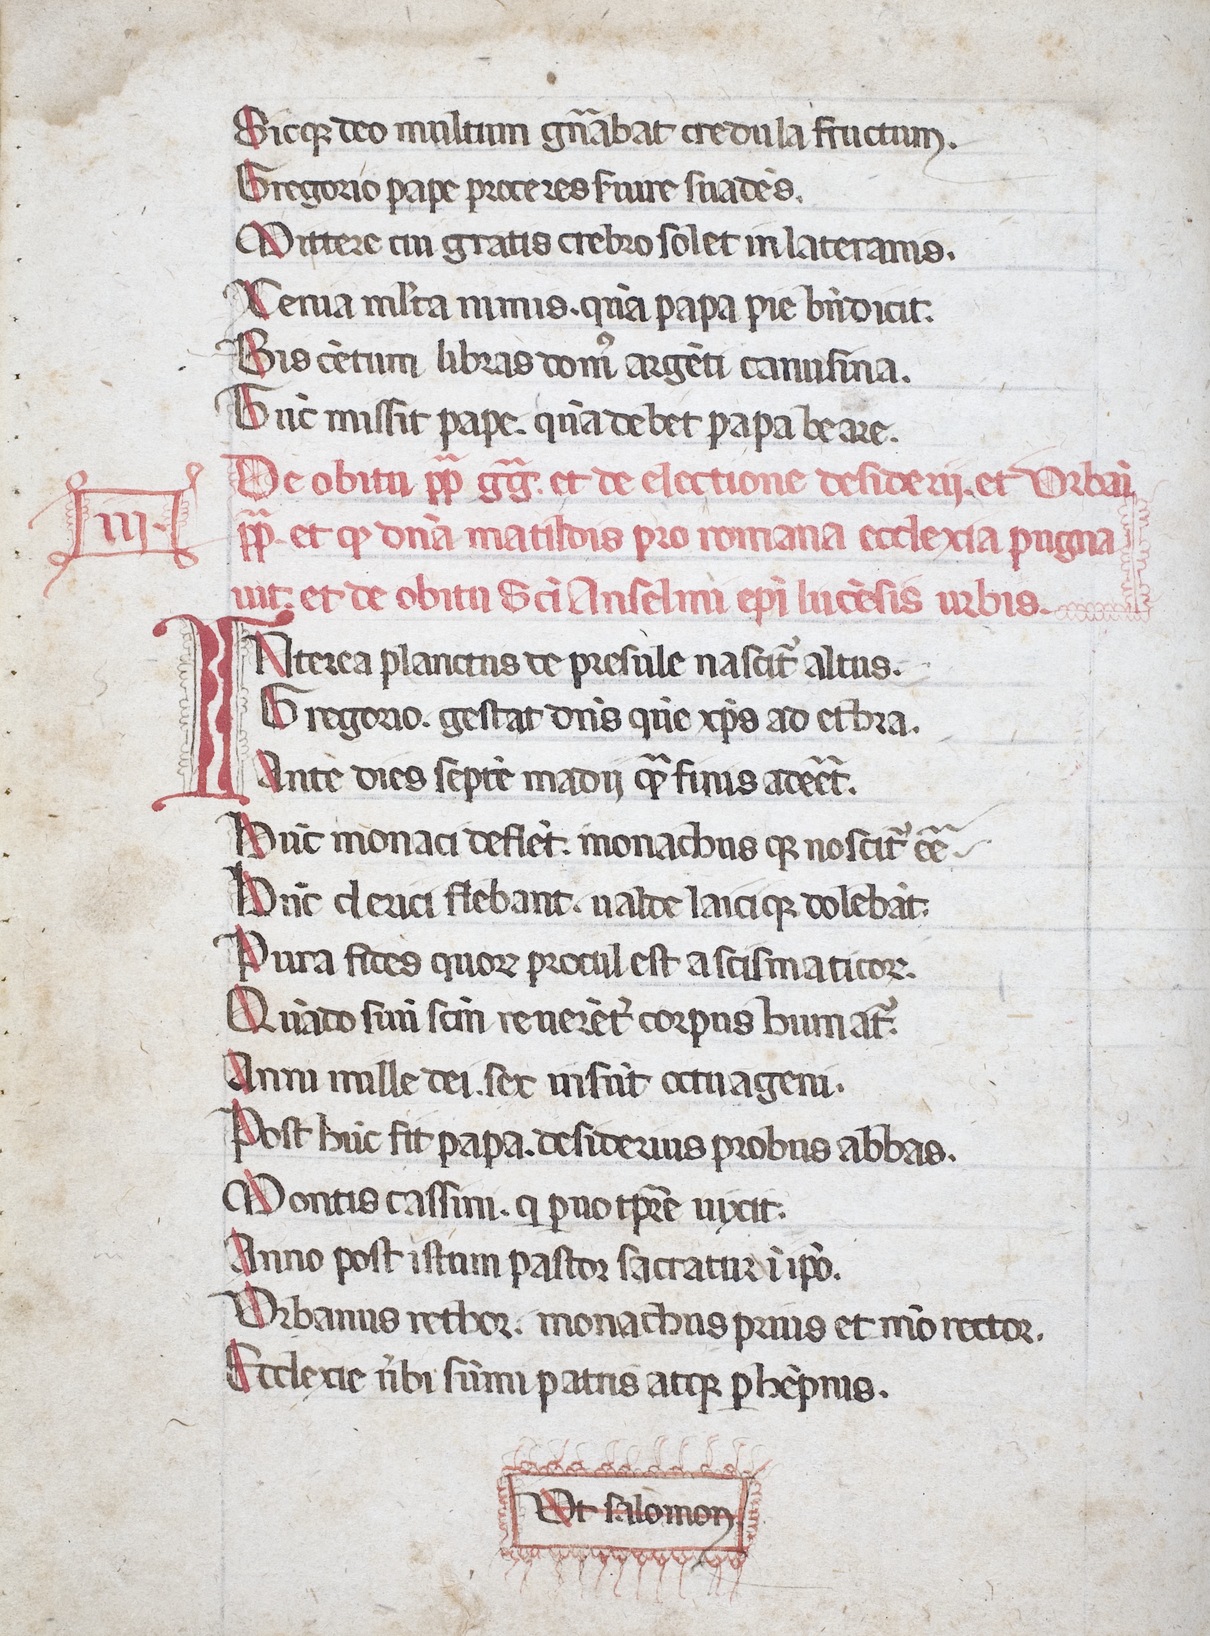 Sicqꝫ deo multum gn̄abat credula fructum.
Gregorio pape proceres s̓uire suadēs.
Mittere cui gratis crebro solet in lateranis.
Xenia ml̓ta nimis. qn̄a papa pie bn̄dicit.
Bis cētum libras domꝰ argēti canusina.
Tūc missit pape. qn̄a debet papa beare.
De obitu pp̄ gḡ. et de electione desiderij. et Vrbāi
pp̄. et ꝙ dn̄a matildis pro romana ecclexia pugna
uit. et de obitu Sc̄i Anselmi ep̄i lucēsis urbis.
INterea planctus de presule nascit᷑ altus.
Gregorio. gestat dn̄s quē xp̄s ad ethra.
Ante dies septē madij qͣ finis adeēt.
Hūc monaci deflēt. monachus qꝫ noscit᷑ eē
Hūc clerici flebant. ualde laici qꝫ dolebāt.
Pura fides quoꝝ procul est a scismaticoꝝ.
Qn̄ado sui sc̄m reuerēt᷑ corpus humat᷑.
Anni mille dei. sex insūt octuageni.
Post hūc fit papa. desiderius probus abbas.
Montis cassini. q ꝑuo tp̄re uixit.
Anno post istum pastor sacratur ī ip̄o.
Vrbanus rethor. monachus prius et mō rector.
Ecclexie ūbi sūmi patris atqꝫ ꝑhēpnis.
Vt salomon